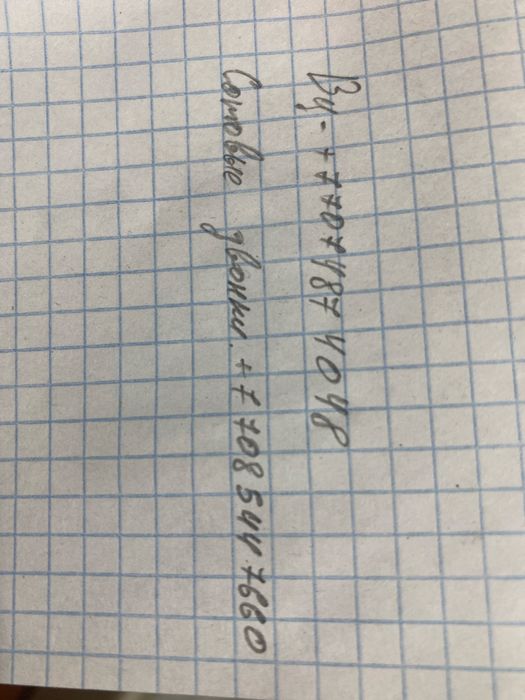 Вц - +77074874048
Сотовые звонки. +77085447660